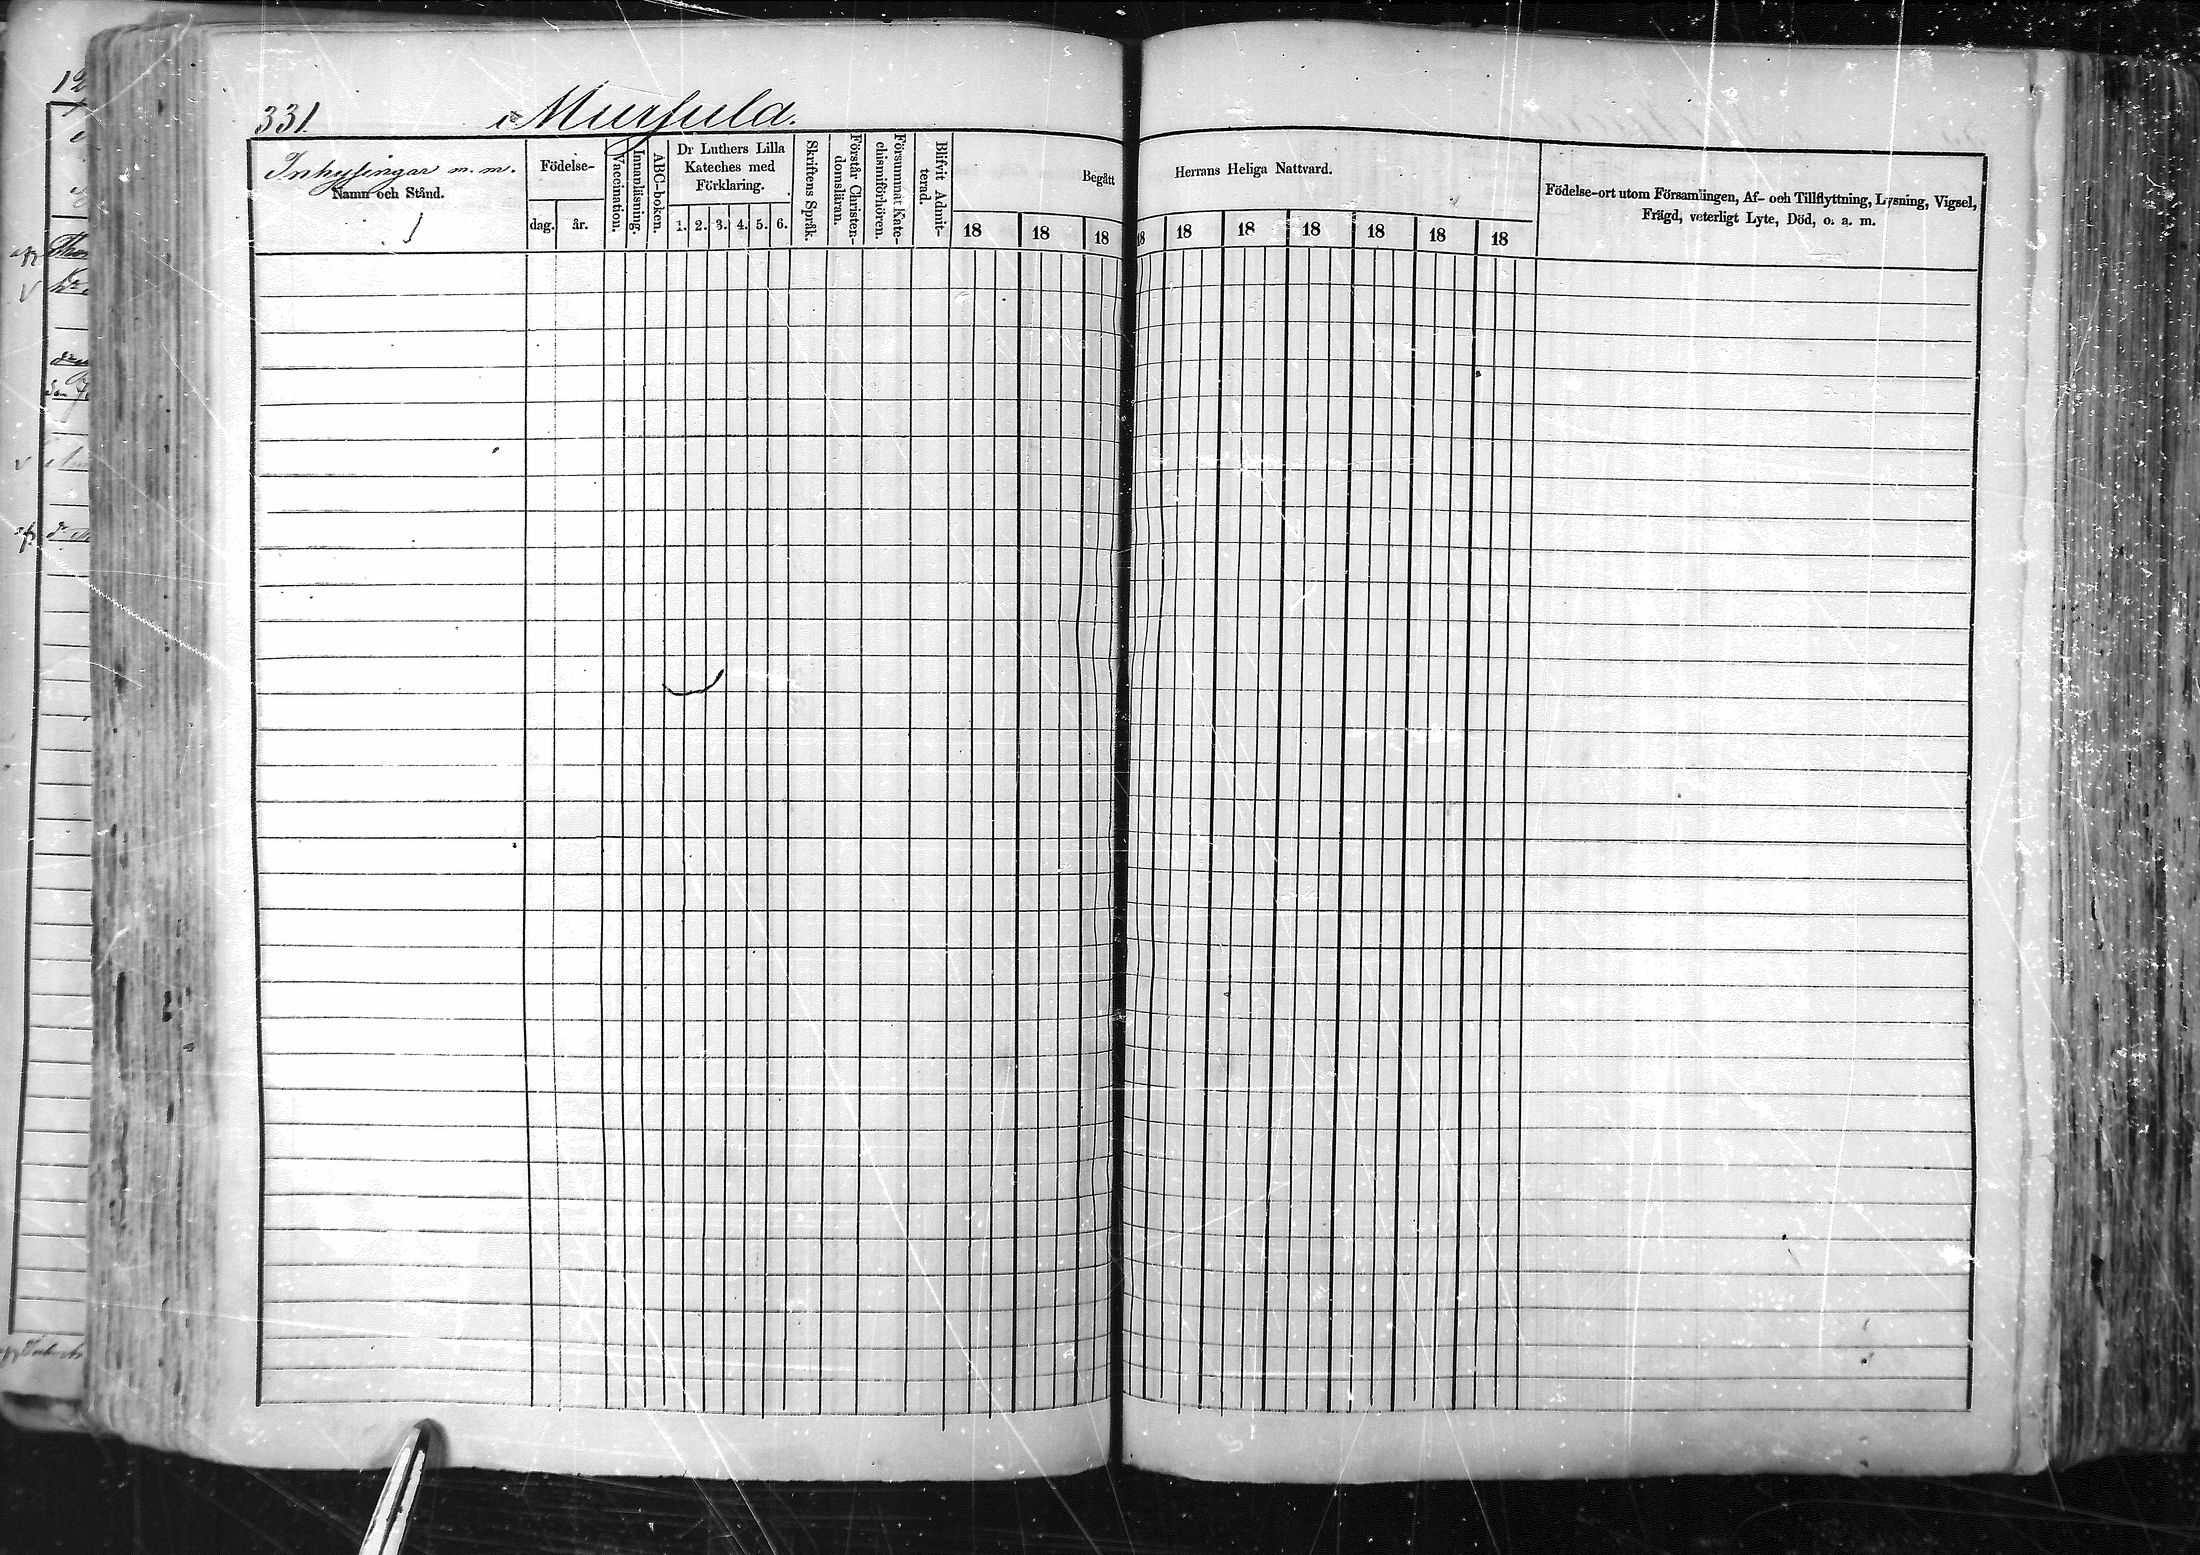 331.
Inhysingar m. m.
Namn och Stånd.
Födelse-
dag. år.
Vaccination.
Innanläsning.
ABC-boken.
Dr Luthers Lilla
Kateches med
Förklaring.
1. 2. 3. 4. 5. 6.
Skriftens Språk.
Förstår Christen-
domsläran.
Försummat Kate-
chismiförhören.
Blifvit Admit-
terad.
Begått Herrans Heliga Nattvard.
18 18 18 18 18 18 18 18 18 18
Födelse-ort utom Församlingen, Af- och Tillflyttning, Lysning, Vigsel,
Frägd, veterligt Lyte, Död, o. a. m.